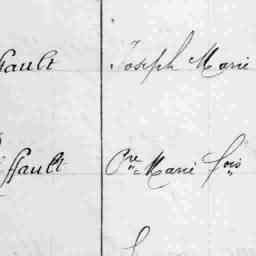 ffault Joseph Marie
iffault Pre Marie fois